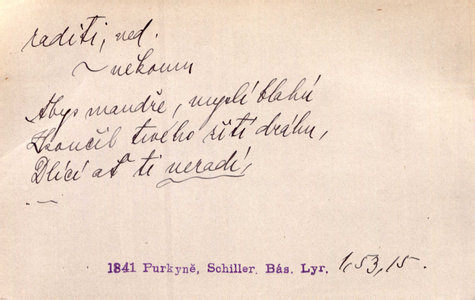 raditi, ned.
~ někomu
Abys mandře, myslí blahú
Skončil tvého žití dráhu,
Dlící ať ti neradí,
—
1841 Purkyně, Schiller. Bás. Lyr. 1,53,15.